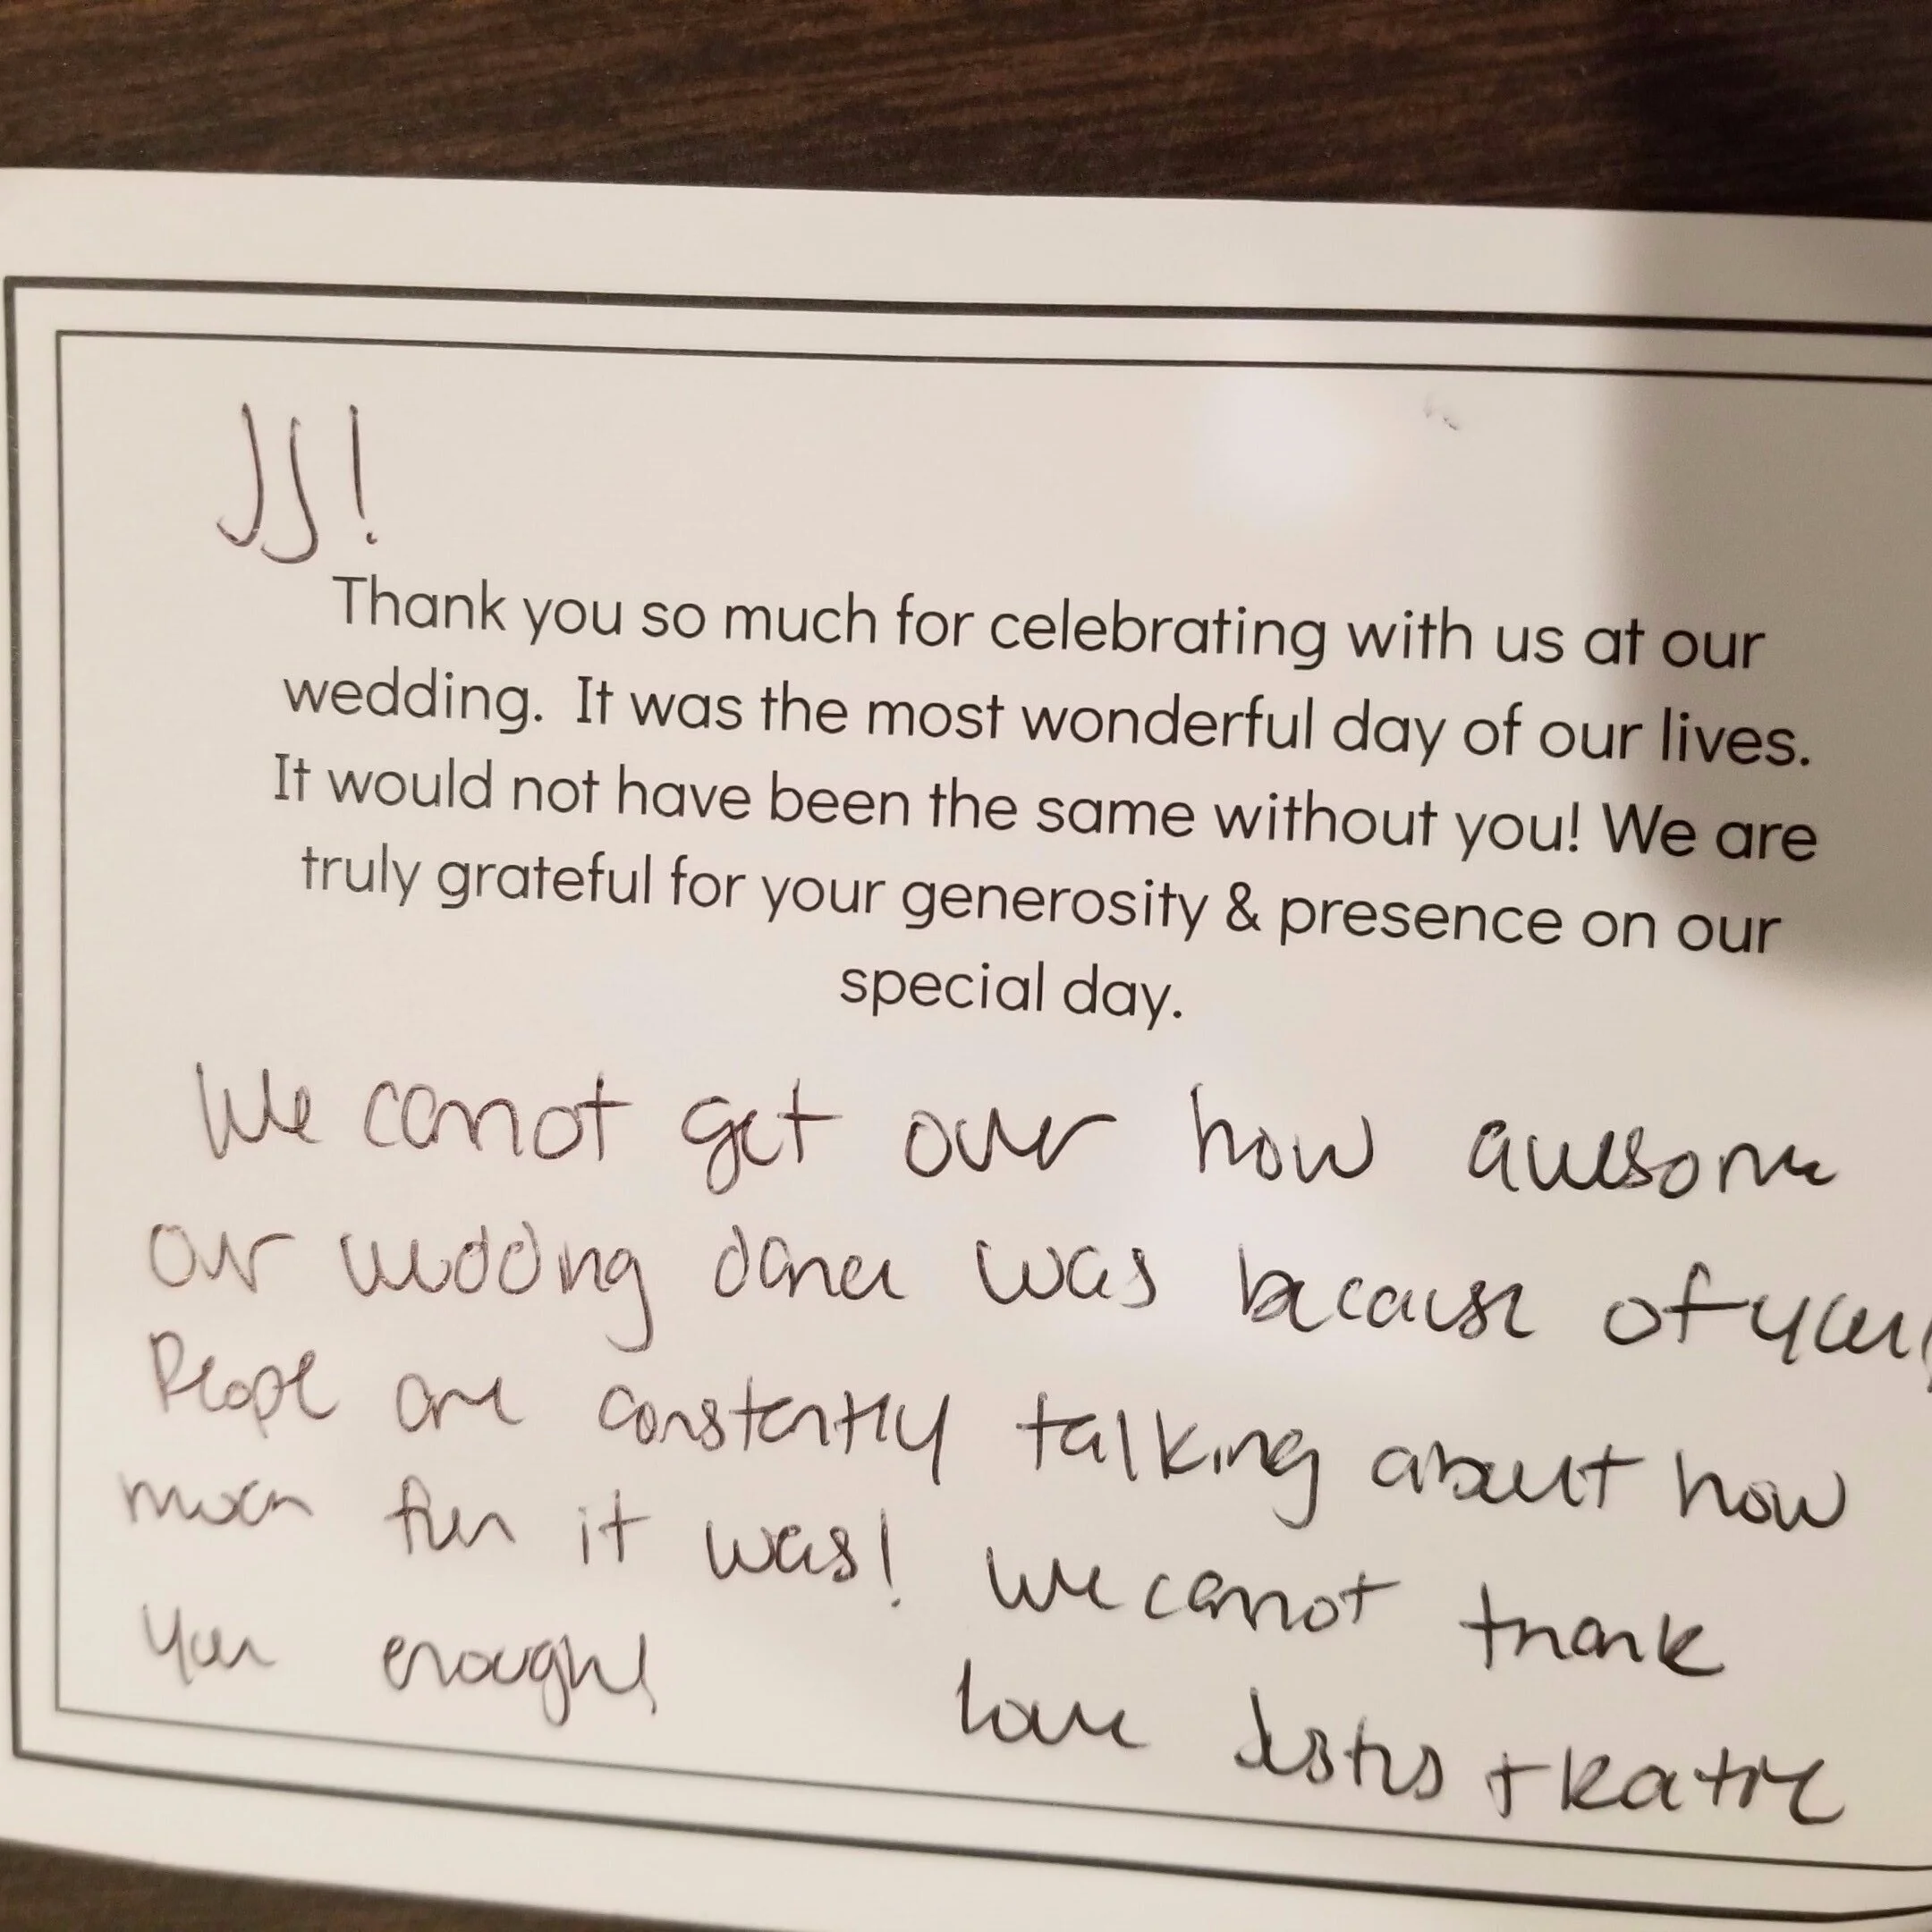 JJ!
Thank you so much for celebrating with us at our
wedding. It was the most wonderful day of our lives.
It would not have been the same without you! We are
truly grateful for your generosity & presence on our
special day.
We cannot get over how awesome
our wedding dance was because of you
People are constantly talking about how
much fun it was! We cannot thank
you enough!
Love + Katie